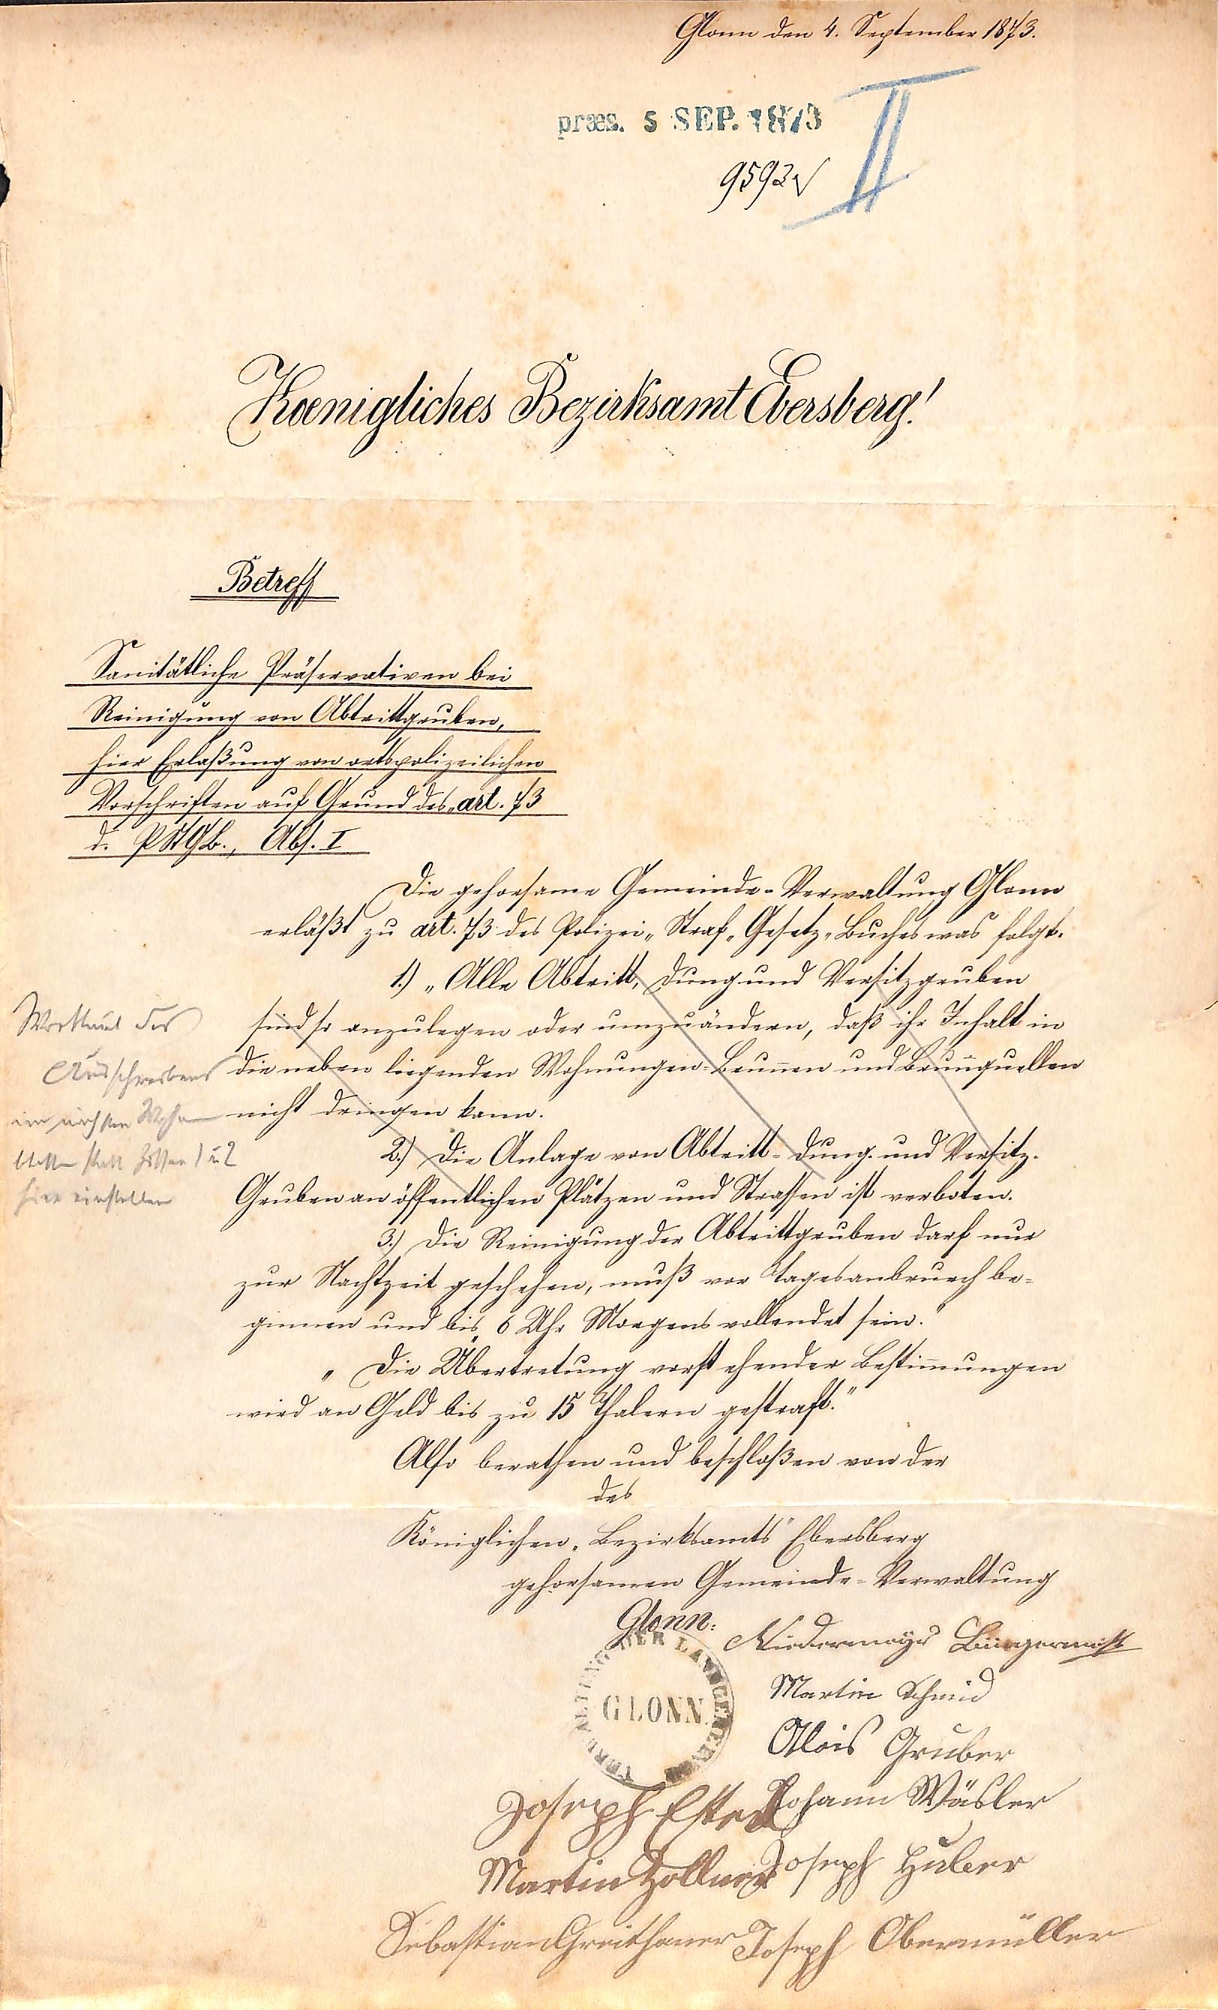 Glonn den 4. September 1873.
præs. 5 SEP. 1873
II
9593
Kœnigliches Bezirksamt Ebersberg!
Betreff
Sanitätliche Präservativen bei
Reinigung von Abtrittgruben,
hier Erlaßung von ortspolizeilichen
Vorschriften auf Grund des art. 73
d. PStGb., Abs. I
Die gehorsame Gemeinde-Verwaltung Glonn
erläßt zu art. 73 des Polizei-Straf-Gesetz-Buches was folgt.
1.) „Alle Abtritt, Dung und Versitzgruben
sind so anzulegen oder umzuändern, daß ihr Inhalt in
die neben liegenden Wohnungen-Brunnen und Brunnquellen
nicht dringen kann.
2.) Die Anlage von Abtritt-Dung- und Versitz-
Gruben an öffentlichen Plätzen und Strassen ist verboten.
3.) Die Reinigung der Abtrittgruben darf nur
zur Nachtzeit geschehen, muß vor Tagesanbruch be-
ginnen und bis 6 Uhr Morgens vollendet sein."
„Die Übertretung vorstehender Bestimmungen
wird an Geld bis zu 15 Thalern gestraft."
Also berathen und beschloßen von der
des
Königlichen Bezirksamts Ebersberg
gehorsamen Gemeinde-Verwaltung
Glonn:
VERWALTUNG DER LANDGEMEINDE
GLONN.
Niedermayr Bürgermeist
Martin Schmid
Alois Gruber
Joseph Esterl Johann Wäsler
Martin Zollner Joseph Huber
Sebastian Greithaner Joseph Obermüller
Wortlaut des
Ausschreibens
im nächsten
blatt statt Ziffer 1 u. 2
hier einstellen